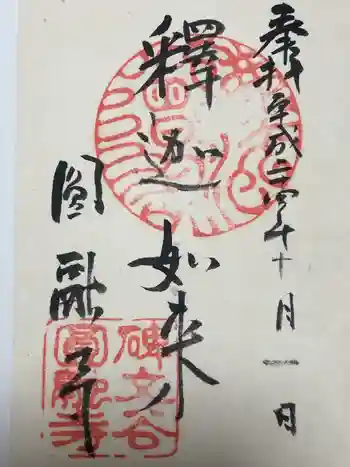 奉拝 平成二四年十月一日
釋迦如来
圓融寺
碑文谷
圓融寺